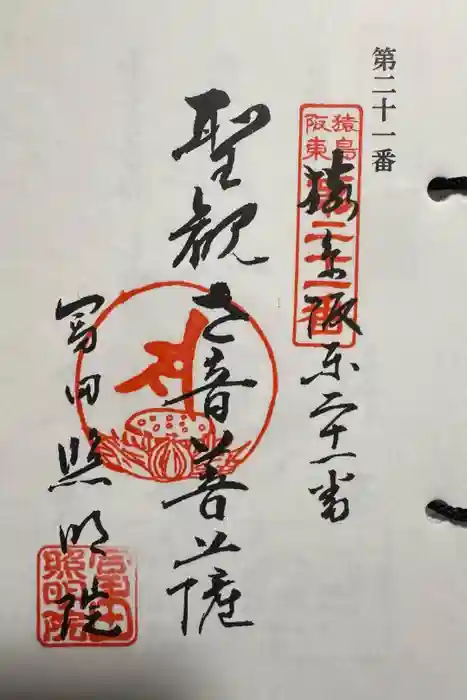 第二十一番
猿島阪東二十一番
猿島
阪東
第二十一番
聖観世音菩薩
冨田照明院
冨田
照明院